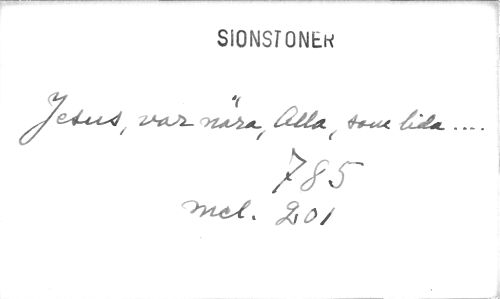 SIONSTONER
Jesus, var nära, Alla, som lida ....
785
mel. 201